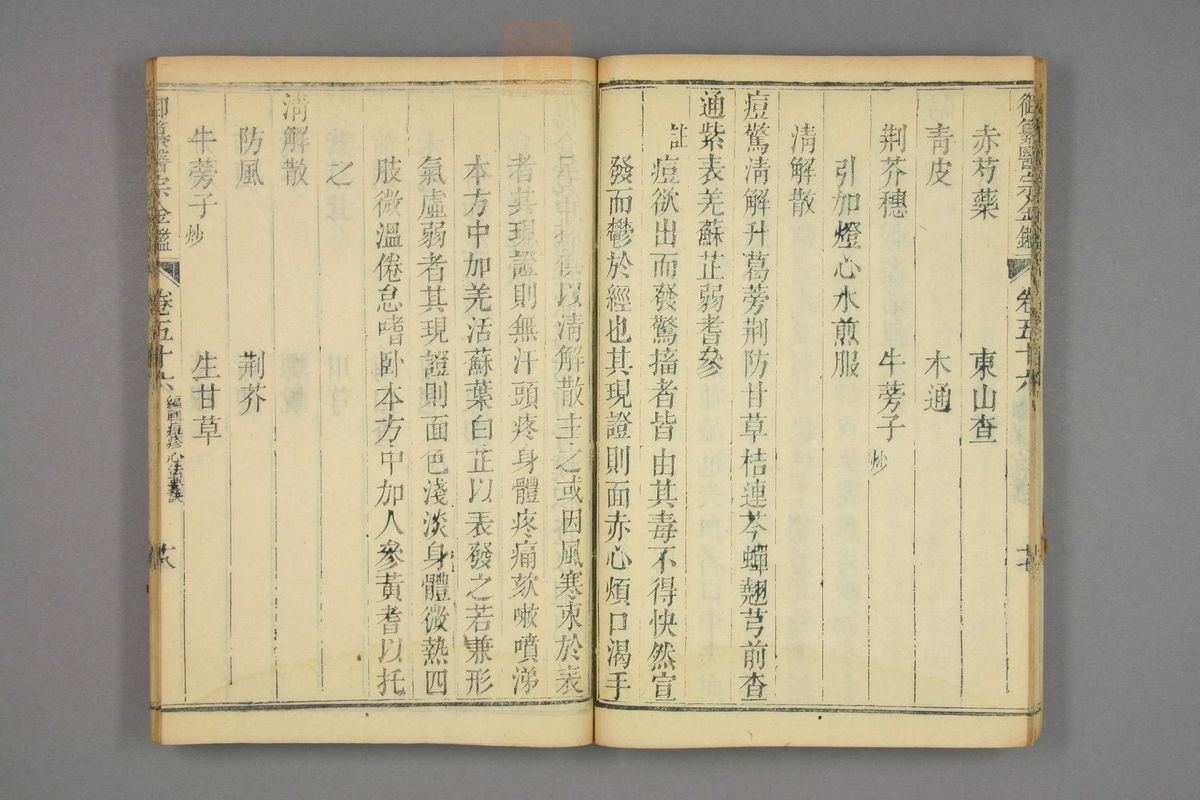 御纂醫宗金鑑 卷五十六
赤芍藥 東山查
青皮 木通
荆芥穗 牛蒡子炒
引加燈心水煎服
清解散
痘驚清解升葛蒡荆防甘草桔連芩蟬翹芎前查
通紫表羌蘇芷弱耆參
註痘欲出而發驚搐者皆由其毒不得快然宣
發而鬱於經也其現證則面赤心煩口渴手
以清解散主之或因風寒束於表
者其現證則無汗頭疼身體疼痛欬嗽噴涕
本方中加羌活蘇葉白芷以表發之若兼形
氣虛弱者其現證則面色淺淡身體微熱四
肢微溫倦怠嗜卧本方中加人參黃耆以托
之
清解散
防風 荆芥
牛蒡子炒 生甘草
御纂醫宗金鑑 卷五十六 編輯痘疹心法要訣